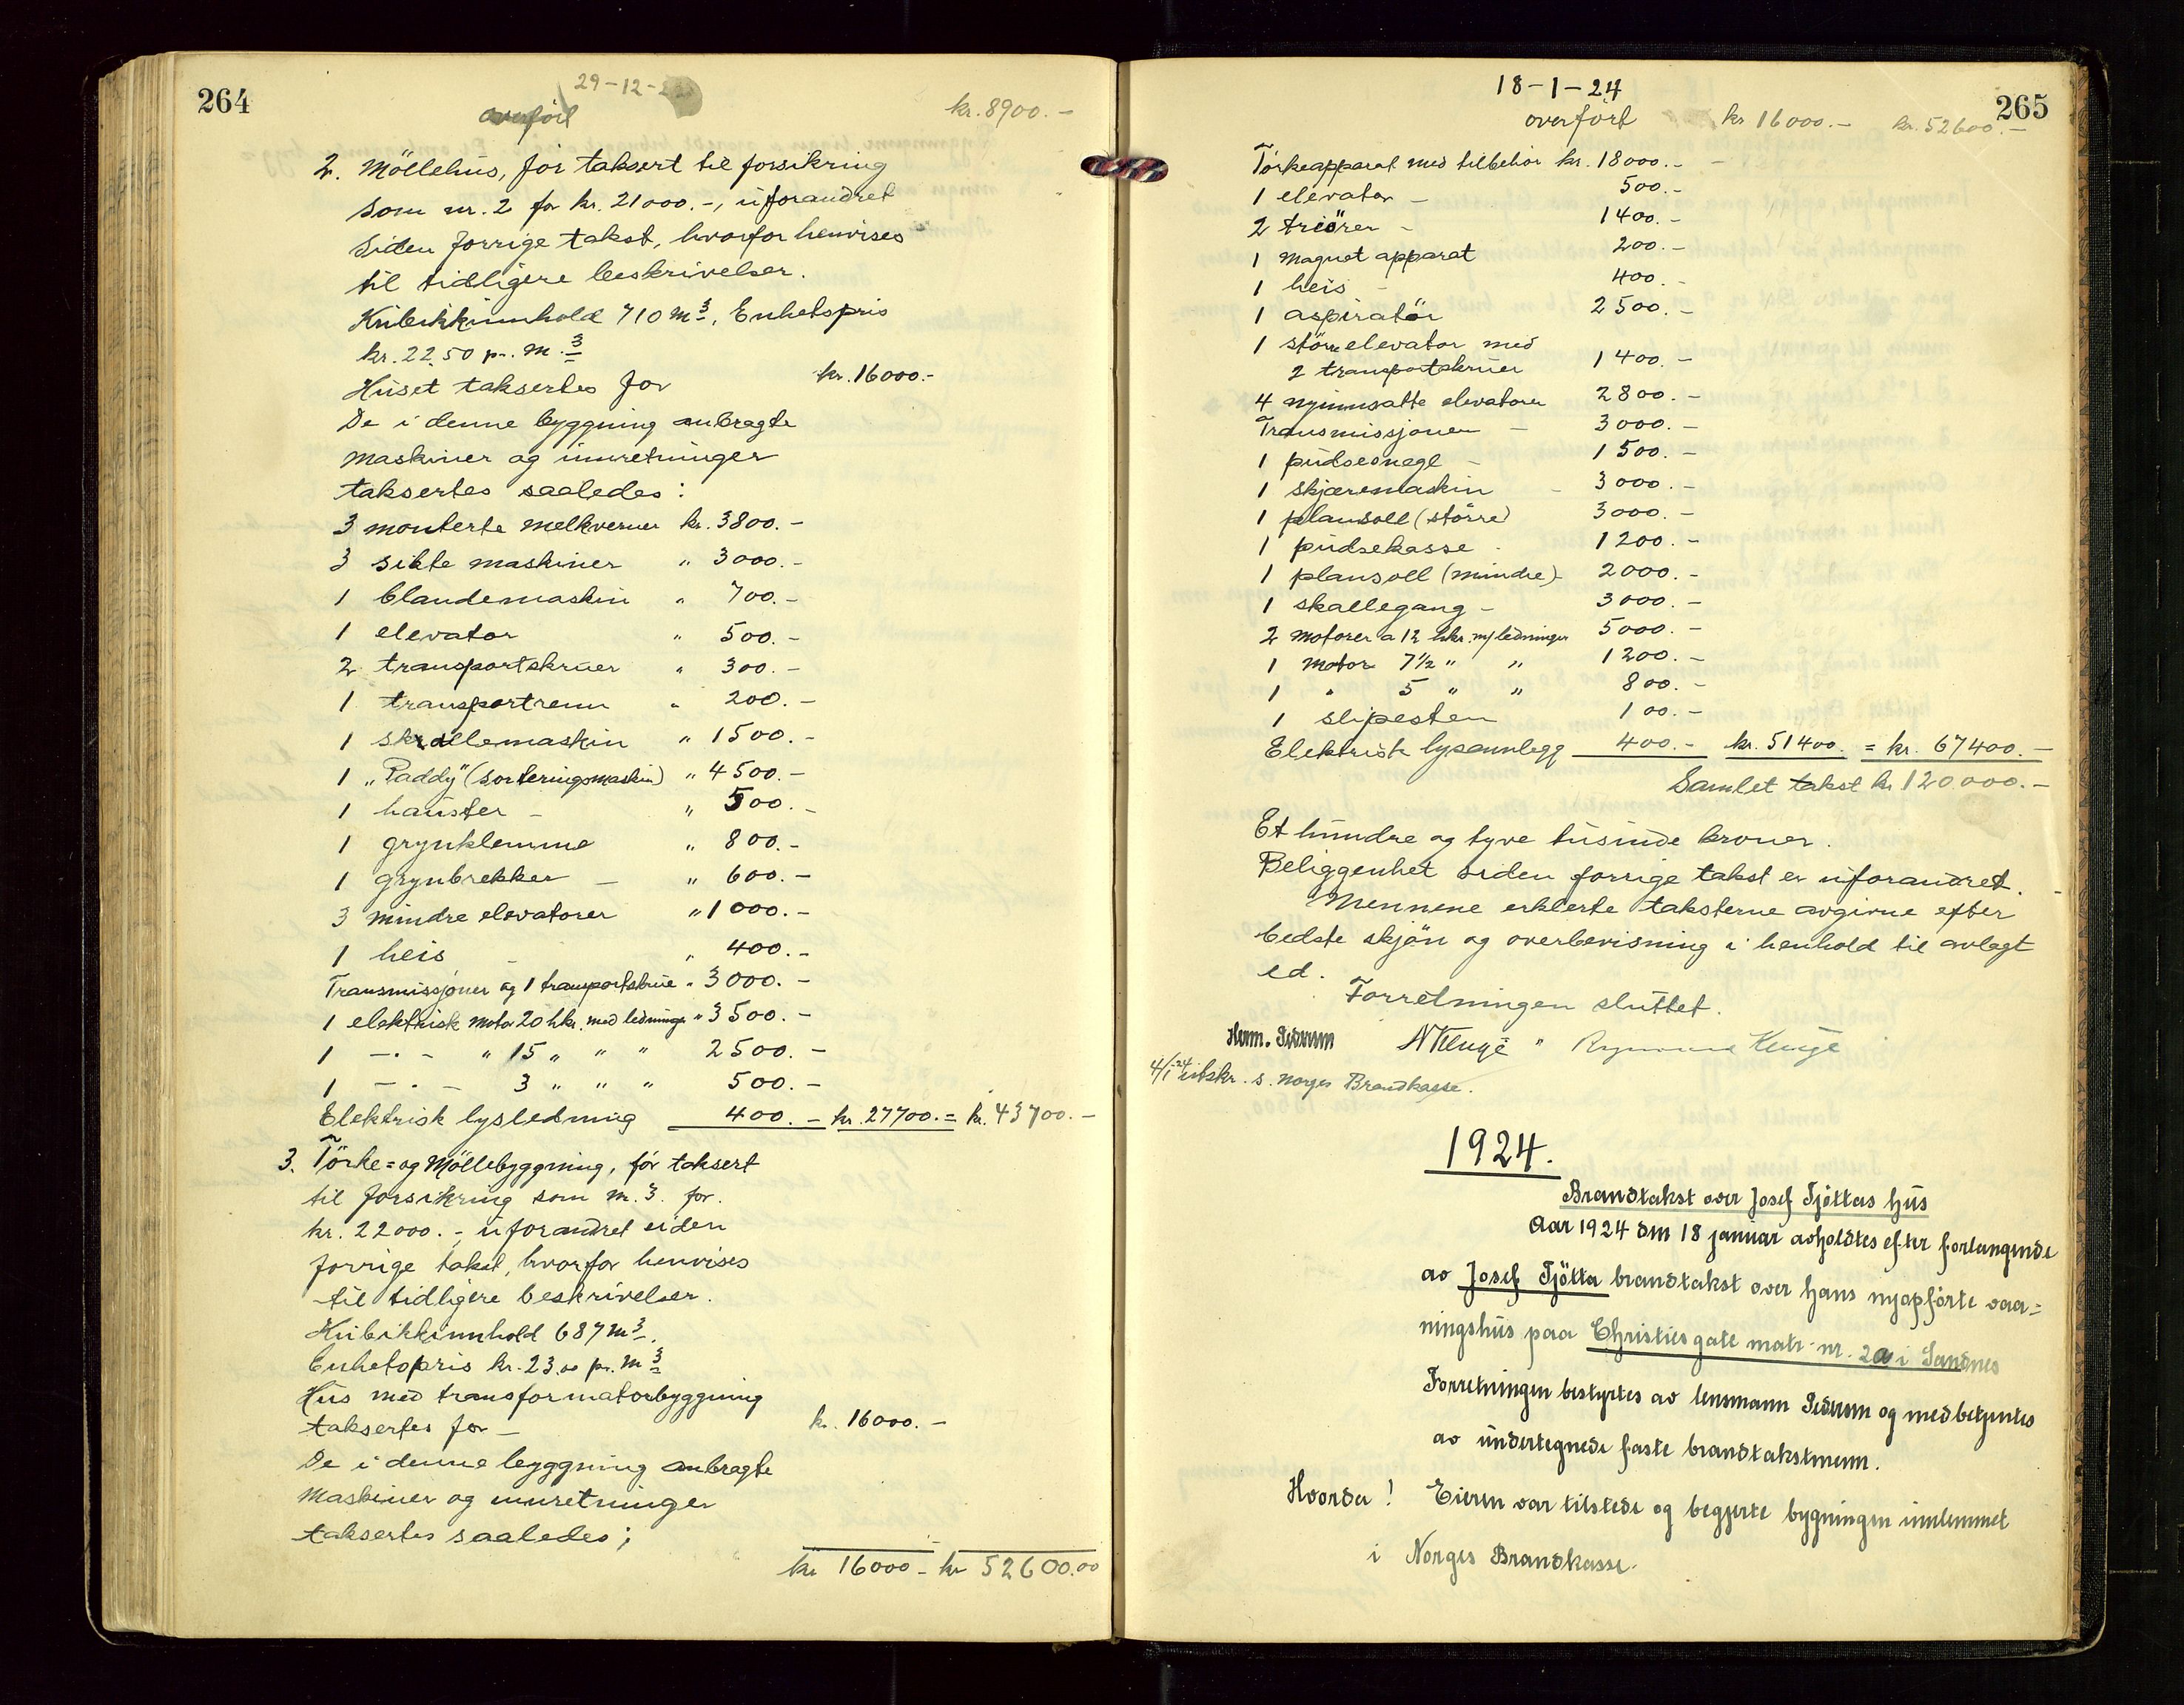 264
29-12-
overført
kr. 8900.-
2. Möllehus, før taksert til forsikring
som nr. 2 for kr. 21000.-, uforandret
siden forrige takst, hvorfor henvises
til tidligere beskrivelser.
Kubikkinnhold 710 m3, Enhetspris
kr. 22.50 pr. m.3
Huset taksertes for kr. 16000.-
De i denne byggning anbragte
maskiner og innretninger
taksertes saaledes:
3 monterte melkverner kr. 3800.-
3 sikte maskiner " 3000.-
1 blandemaskin " 700.-
1 elevator " 500.-
2 transportskruer " 300.-
1 transportrenn " 200.-
1 skrallemaskin " 1500.-
1 „Paddy" (sorteringsmaskin) " 4500.-
1 hauster - " 500.-
1 grynklemme " 800.-
1 grynbrekker - " 600.-
3 mindre elevatorer " 1000.-
1 heis - " 400.-
Transmissjoner og 1 transportskrue " 3000.-
1 elektrisk motor 20 hkr. med ledninger " 3500.-
1 -"- " 15 " " " 2500.-
1 -"- 3 " " " 500.-
Elektrisk lysledning 400.- kr. 27700.= kr. 43700.-
3. Törke= og Möllebyggning, før taksert
til forsikring som nr. 3. for
kr. 22000.-, uforandret siden
forrige takst, hvorfor henvises
til tidligere beskrivelser.
Kubikkinnhold 687 m3.
Enhetspris kr. 23.00 pr. m3
Hus med transformatorbyggning
taksertes for - kr. 16000.-
De i denne byggning anbragte
maskiner og innretninger
taksertes saaledes;
kr 16000- kr 52600.00
18-1-24
265
overført kr 16000.- kr. 52600.-
Törkeapparat med tilbehör kr. 18000.-
1 elevator - 500.-
2 triörer - 1400.-
1 magnet apparat 200.-
1 heis - 400.-
1 aspiratör 2500.-
1 större elevator med
2 transportskruer 1400.-
4 nyinnsatte elevatorer 2800.-
Transmissjoner - 3000.-
1 pudsesnegl - 1500.-
1 skjæremaskin - 3000.-
1 plansoll (större) 3000.-
1 pudsekasse - 1200.-
1 plansoll (mindre) 2000.-
1 skallegang - 3000.-
2 motorer a 12 hkr. m/ledninger 5000.-
1 motor 7½ " " 1200.-
1 " 5 " " 800.-
1 slipesten 100.-
Elektrisk lysannlegg 400.- kr. 51400. = kr. 67400.-
Samlet takst kr 120.000.-
Et hundre og tyve tusinde kroner.
Beliggenhet siden forrige takst er uforandret.
Mennene erklerte taksterne avgivne efter
bedste skjön og overbevisning i henhold til avlagt
ed.
Forretningen sluttet.
Herm. Pedersen
4/1 24 utskr. s. Norges Brandkasse.
1924.
Brandtakst over Josef Tjöttas hus
Aar 1924 den 18 januar avholdtes efter forlangende
av Josef Tjötta brandtakst over hans nyopförte vaa=
ningshus paa Christiesgate matr. nr. 2a i Sandnes
Forretningen bestyrtes av lensmann Pedersen og medbetjentes
av undertegnede faste brandtakstmenn.
Hvorda! Eieren var tilstede og begjerte bygningen innlemmet
i Norges Brandkasse.